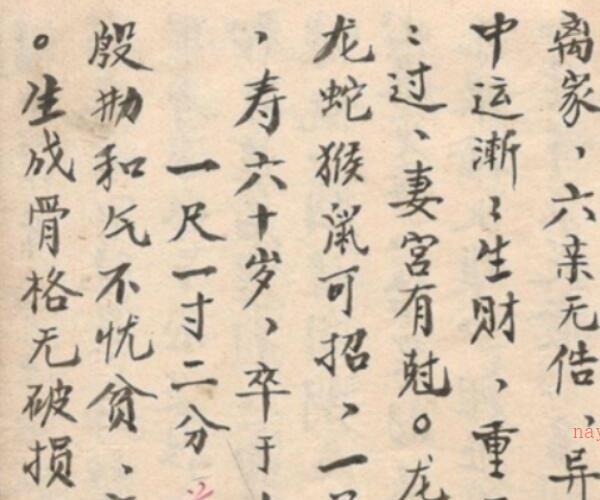 离家，六亲无俈、异
中运渐⺀生财、重
⺀过、妻宫有尅。龙
龙蛇猴鼠可招、一
、寿六十岁、卒于
一尺一寸二分
殷勤和气不忧贫、
。生成骨格无破损
nay